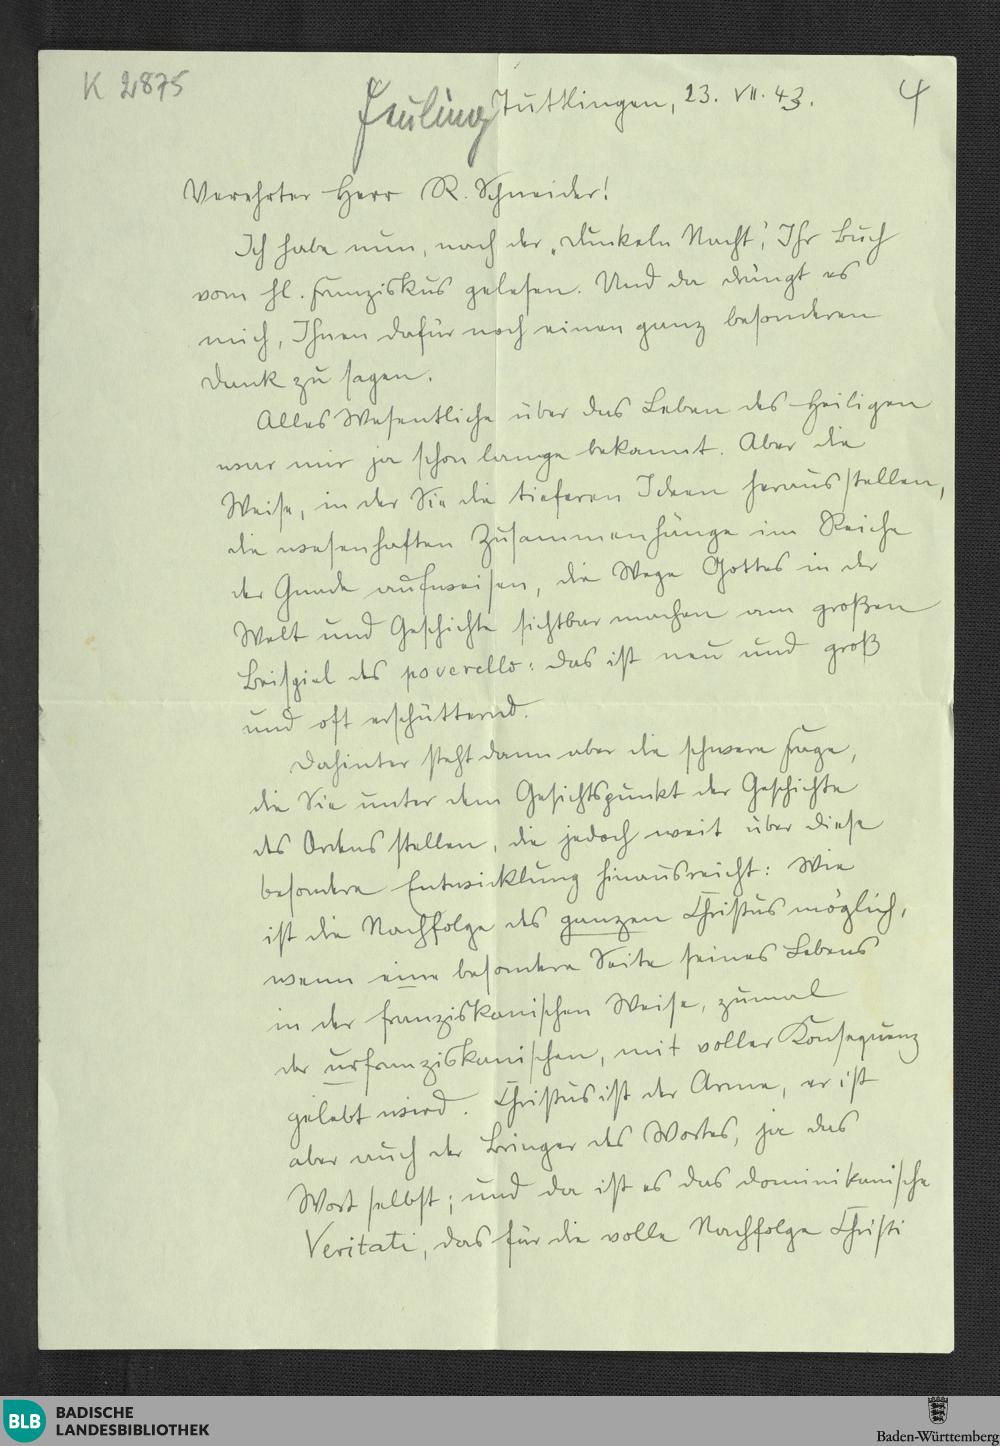 K 2875
Feuling Tuttlingen, 23. VII. 43. 4
Verehrter Herr R. Schneider!
Ich habe nun, nach der „Dunkeln Nacht“, Ihr Buch
vom hl. Franziskus gelesen. Und da drängt es
mich, Ihnen dafür noch einen ganz besonderen
Dank zu sagen.
Alles Wesentliche über das Leben des Heiligen
war mir ja schon lange bekannt. Aber die
Weise, in der Sie die tieferen Ideen herausstellen,
die wesenhaften Zusammenhänge im Reiche
der Gnade aufweisen, die Wege Gottes in der
Welt und Geschichte sichtbar machen am großen
Beispiel des poverello: das ist neu und groß
und oft erschütternd.
Dahinter steht dann aber die schwere Frage,
die Sie unter dem Gesichtspunkt der Geschichte
des Ordens stellen, die jedoch weit über diese
besondere Entwicklung hinausreicht: Wie
ist die Nachfolge des ganzen Christus möglich,
wenn eine besondere Seite seines Lebens
in der franziskanischen Weise, zumal
der urfranziskanischen, mit voller Konsequenz
gelebt wird. Christus ist der Arme, er ist
aber auch der Bringer des Wortes, ja das
Wort selbst; und da ist es das dominikanische
Veritati, das für die volle Nachfolge Christi
BLB BADISCHE
LANDESBIBLIOTHEK
Baden-Württemberg